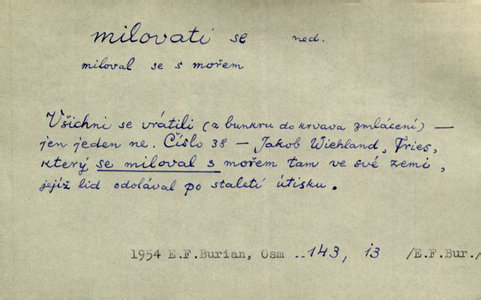 milovati se ned.
miloval se s mořem
Všichni se vrátili (z bunkru do krvava zmlácení) —
jen jeden ne. Číslo 38 — Jakob Wiehland, Fries,
který se miloval s mořem tam ve své zemi,
jejíž lid odolával po staletí útisku.
1954 E.F.Burian, Osm ..143, 13 /E.F.Bur./